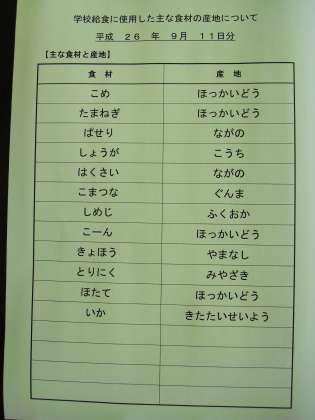 学校給食に使用した主な食材の産地について
平成 26 年 9月 11日分
【主な食材と産地】
食 材 産 地
こめ ほっかいどう
たまねぎ ほっかいどう
ぱせり ながの
しょうが こうち
はくさい ながの
こまつな ぐんま
しめじ ふくおか
こーん ほっかいどう
きょほう やまなし
とりにく みやざき
ほたて ほっかいどう
いか きたたいせいよう